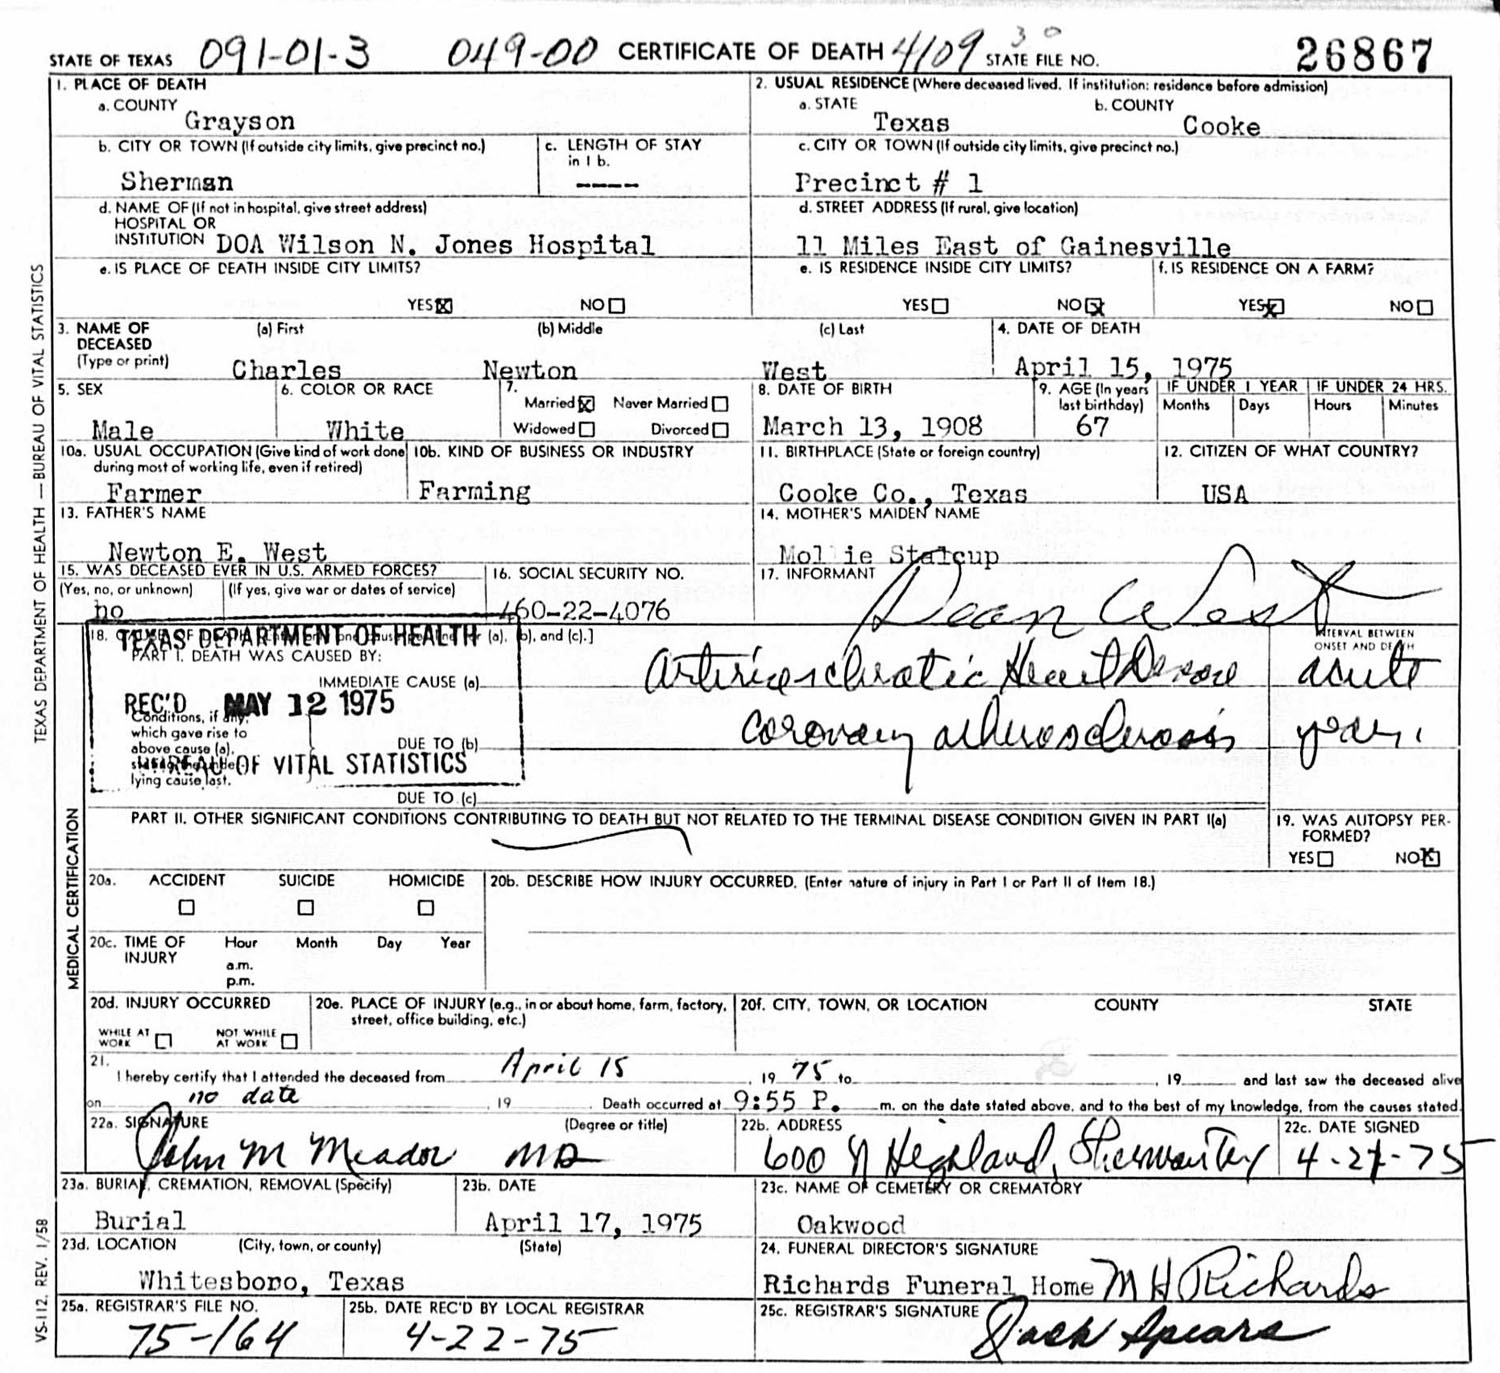 STATE OF TEXAS 091-01-3 049-00 CERTIFICATE OF DEATH 4109 30 STATE FILE NO. 26867
1. PLACE OF DEATH
a. COUNTY
Grayson
2. USUAL RESIDENCE (Where deceased lived. If institution: residence before admission)
a. STATE b. COUNTY
Texas Cooke
b. CITY OR TOWN (If outside city limits, give precinct no.)
Sherman
c. LENGTH OF STAY
in 1 b.
-----
c. CITY OR TOWN (If outside city limits, give precinct no.)
Precinct # 1
d. NAME OF (If not in hospital, give street address)
HOSPITAL OR
INSTITUTION DOA Wilson N. Jones Hospital
d. STREET ADDRESS (If rural, give location)
11 Miles East of Gainesville
e. IS PLACE OF DEATH INSIDE CITY LIMITS?
YES☒ NO☐
e. IS RESIDENCE INSIDE CITY LIMITS?
YES☐ NO☒
f. IS RESIDENCE ON A FARM?
YES☒ NO☐
3. NAME OF (a) First (b) Middle (c) Last
DECEASED
(Type or print) Charles Newton West
4. DATE OF DEATH
April 15, 1975
5. SEX
Male
6. COLOR OR RACE
White
7.
Married☒ Never Married☐
Widowed☐ Divorced☐
8. DATE OF BIRTH
March 13, 1908
9. AGE (In years
last birthday)
67
IF UNDER 1 YEAR IF UNDER 24 HRS.
Months Days Hours Minutes
10a. USUAL OCCUPATION (Give kind of work done
during most of working life, even if retired)
Farmer
10b. KIND OF BUSINESS OR INDUSTRY
Farming
11. BIRTHPLACE (State or foreign country)
Cooke Co., Texas
12. CITIZEN OF WHAT COUNTRY?
USA
13. FATHER'S NAME
Newton E. West
14. MOTHER'S MAIDEN NAME
Mollie Stalcup
15. WAS DECEASED EVER IN U.S. ARMED FORCES?
(Yes, no, or unknown) (If yes, give war or dates of service)
no
16. SOCIAL SECURITY NO.
460-22-4076
17. INFORMANT
Dean West
18. (a), (b), and (c).]
TEXAS DEPARTMENT OF HEALTH
PART I. DEATH WAS CAUSED BY:
IMMEDIATE CAUSE (a) Arteriosclerotic Heart Disease
INTERVAL BETWEEN
ONSET AND DEATH
acute
REC'D MAY 12 1975
Conditions, if any,
which gave rise to
above cause (a),
lying cause last.
BUREAU OF VITAL STATISTICS
DUE TO (b) coronary atherosclerosis years.
DUE TO (c)
PART II. OTHER SIGNIFICANT CONDITIONS CONTRIBUTING TO DEATH BUT NOT RELATED TO THE TERMINAL DISEASE CONDITION GIVEN IN PART I(a)
19. WAS AUTOPSY PER-
FORMED?
YES☐ NO☒
20a. ACCIDENT SUICIDE HOMICIDE
☐ ☐ ☐
20b. DESCRIBE HOW INJURY OCCURRED. (Enter nature of injury in Part I or Part II of Item 18.)
20c. TIME OF Hour Month Day Year
INJURY a.m.
p.m.
20d. INJURY OCCURRED
WHILE AT WORK ☐ NOT WHILE AT WORK ☐
20e. PLACE OF INJURY (e.g., in or about home, farm, factory,
street, office building, etc.)
20f. CITY, TOWN, OR LOCATION COUNTY STATE
21.
I hereby certify that I attended the deceased from April 15, 19 75 to , 19 and last saw the deceased alive
on no date , 19 . Death occurred at 9:55 P. m. on the date stated above, and to the best of my knowledge, from the causes stated.
22a. SIGNATURE (Degree or title)
John M Meador MD
22b. ADDRESS
600 N Highland, Sherman Tex
22c. DATE SIGNED
4-21-75
23a. BURIAL, CREMATION, REMOVAL (Specify)
Burial
23b. DATE
April 17, 1975
23c. NAME OF CEMETERY OR CREMATORY
Oakwood
23d. LOCATION (City, town, or county) (State)
Whitesboro, Texas
24. FUNERAL DIRECTOR'S SIGNATURE
Richards Funeral Home M H Richards
25a. REGISTRAR'S FILE NO.
75-164
25b. DATE REC'D BY LOCAL REGISTRAR
4-22-75
25c. REGISTRAR'S SIGNATURE
Jack Spears
TEXAS DEPARTMENT OF HEALTH — BUREAU OF VITAL STATISTICS
MEDICAL CERTIFICATION
VS-112, REV. 1/58